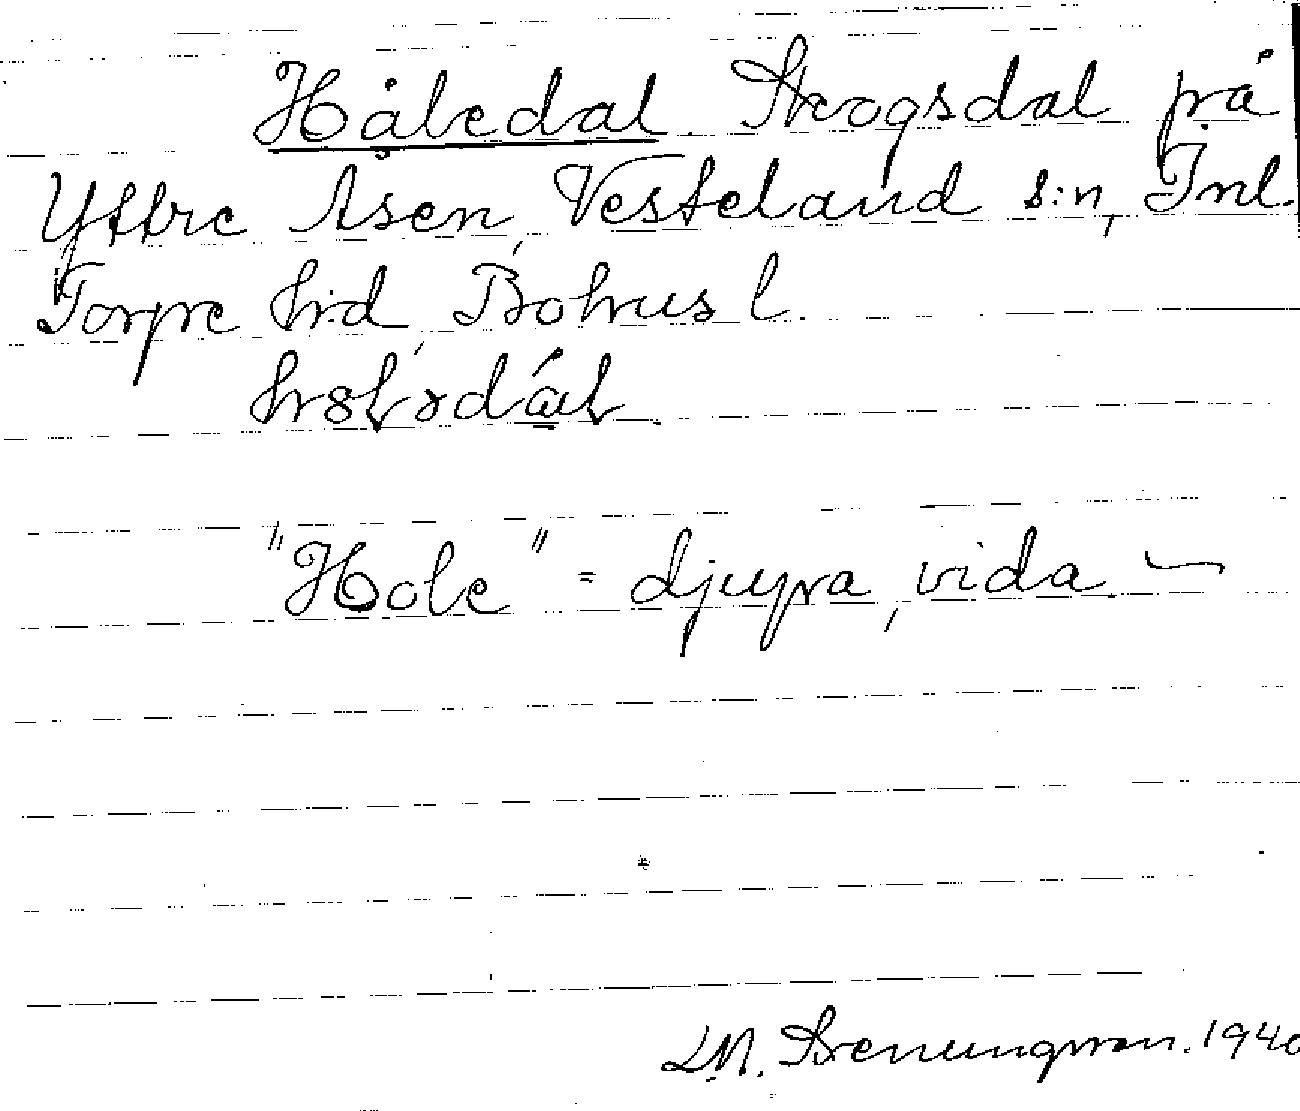 Håledal. Skogsdal på
Yttre Åsen, Vesteland s:n, Inl.
Torpe hrd, Bohusl.
"Hole" = djupa, vida —
1940